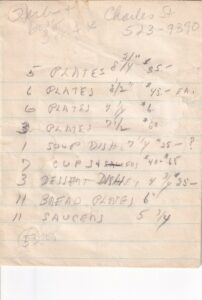 Charles St
523-9890
5 PLATES 8 3/4" $35-
6 PLATES 8 1/2" $45- EA.
6 PLATES 7 1/4 $6
3 PLATES 7 1/2 $60
1 SOUP DISH, 7 1/4 $25- ?
7 CUP SAUCERS $40-$65
3 DESSERT DISH, 4 3/4 $35-
11 BREAD PLATES 6"
11 SAUCERS 5 3/4